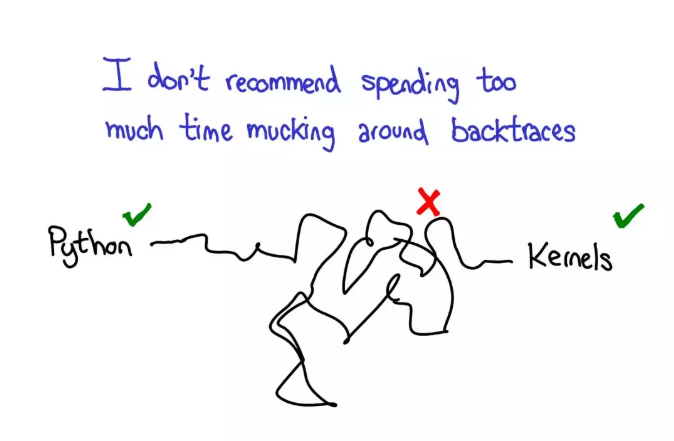 I don't recommend spending too
much time mucking around backtraces
Python
Kernels